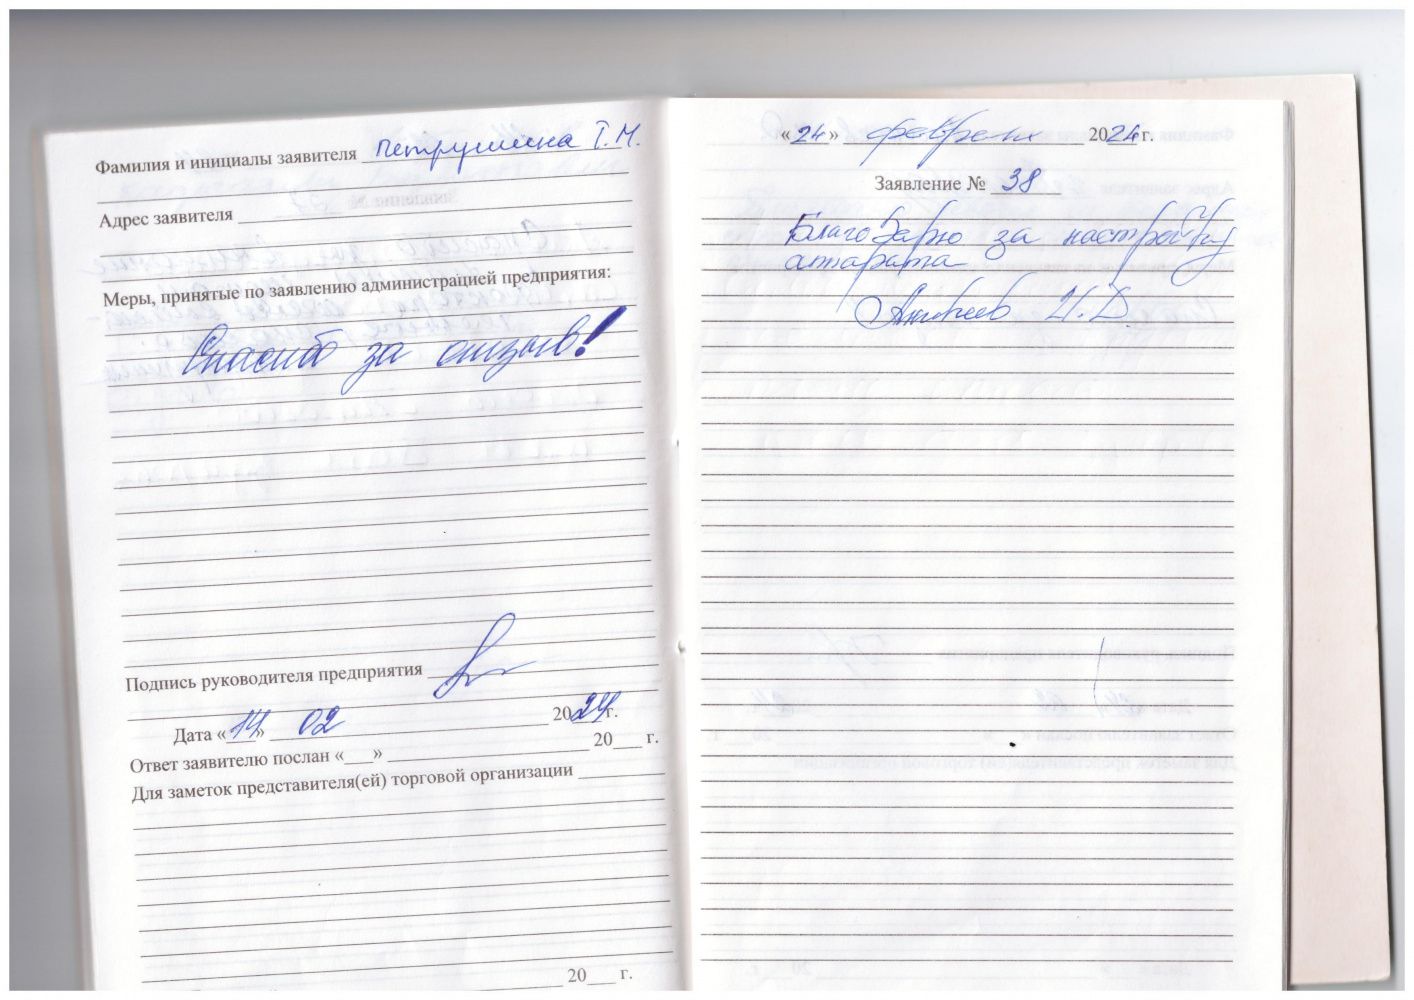 Фамилия и инициалы заявителя Петрушина Т.М.
Адрес заявителя
Меры, принятые по заявлению администрацией предприятия:
Спасибо за отзыв!
Подпись руководителя предприятия
Дата «14» 02 2024 г.
Ответ заявителю послан «___» 20___ г.
Для заметок представителя(ей) торговой организации
20___ г.
«24» февраля 2024 г.
Заявление № 38
Благодарю за настройку
аппарата
И.Д.